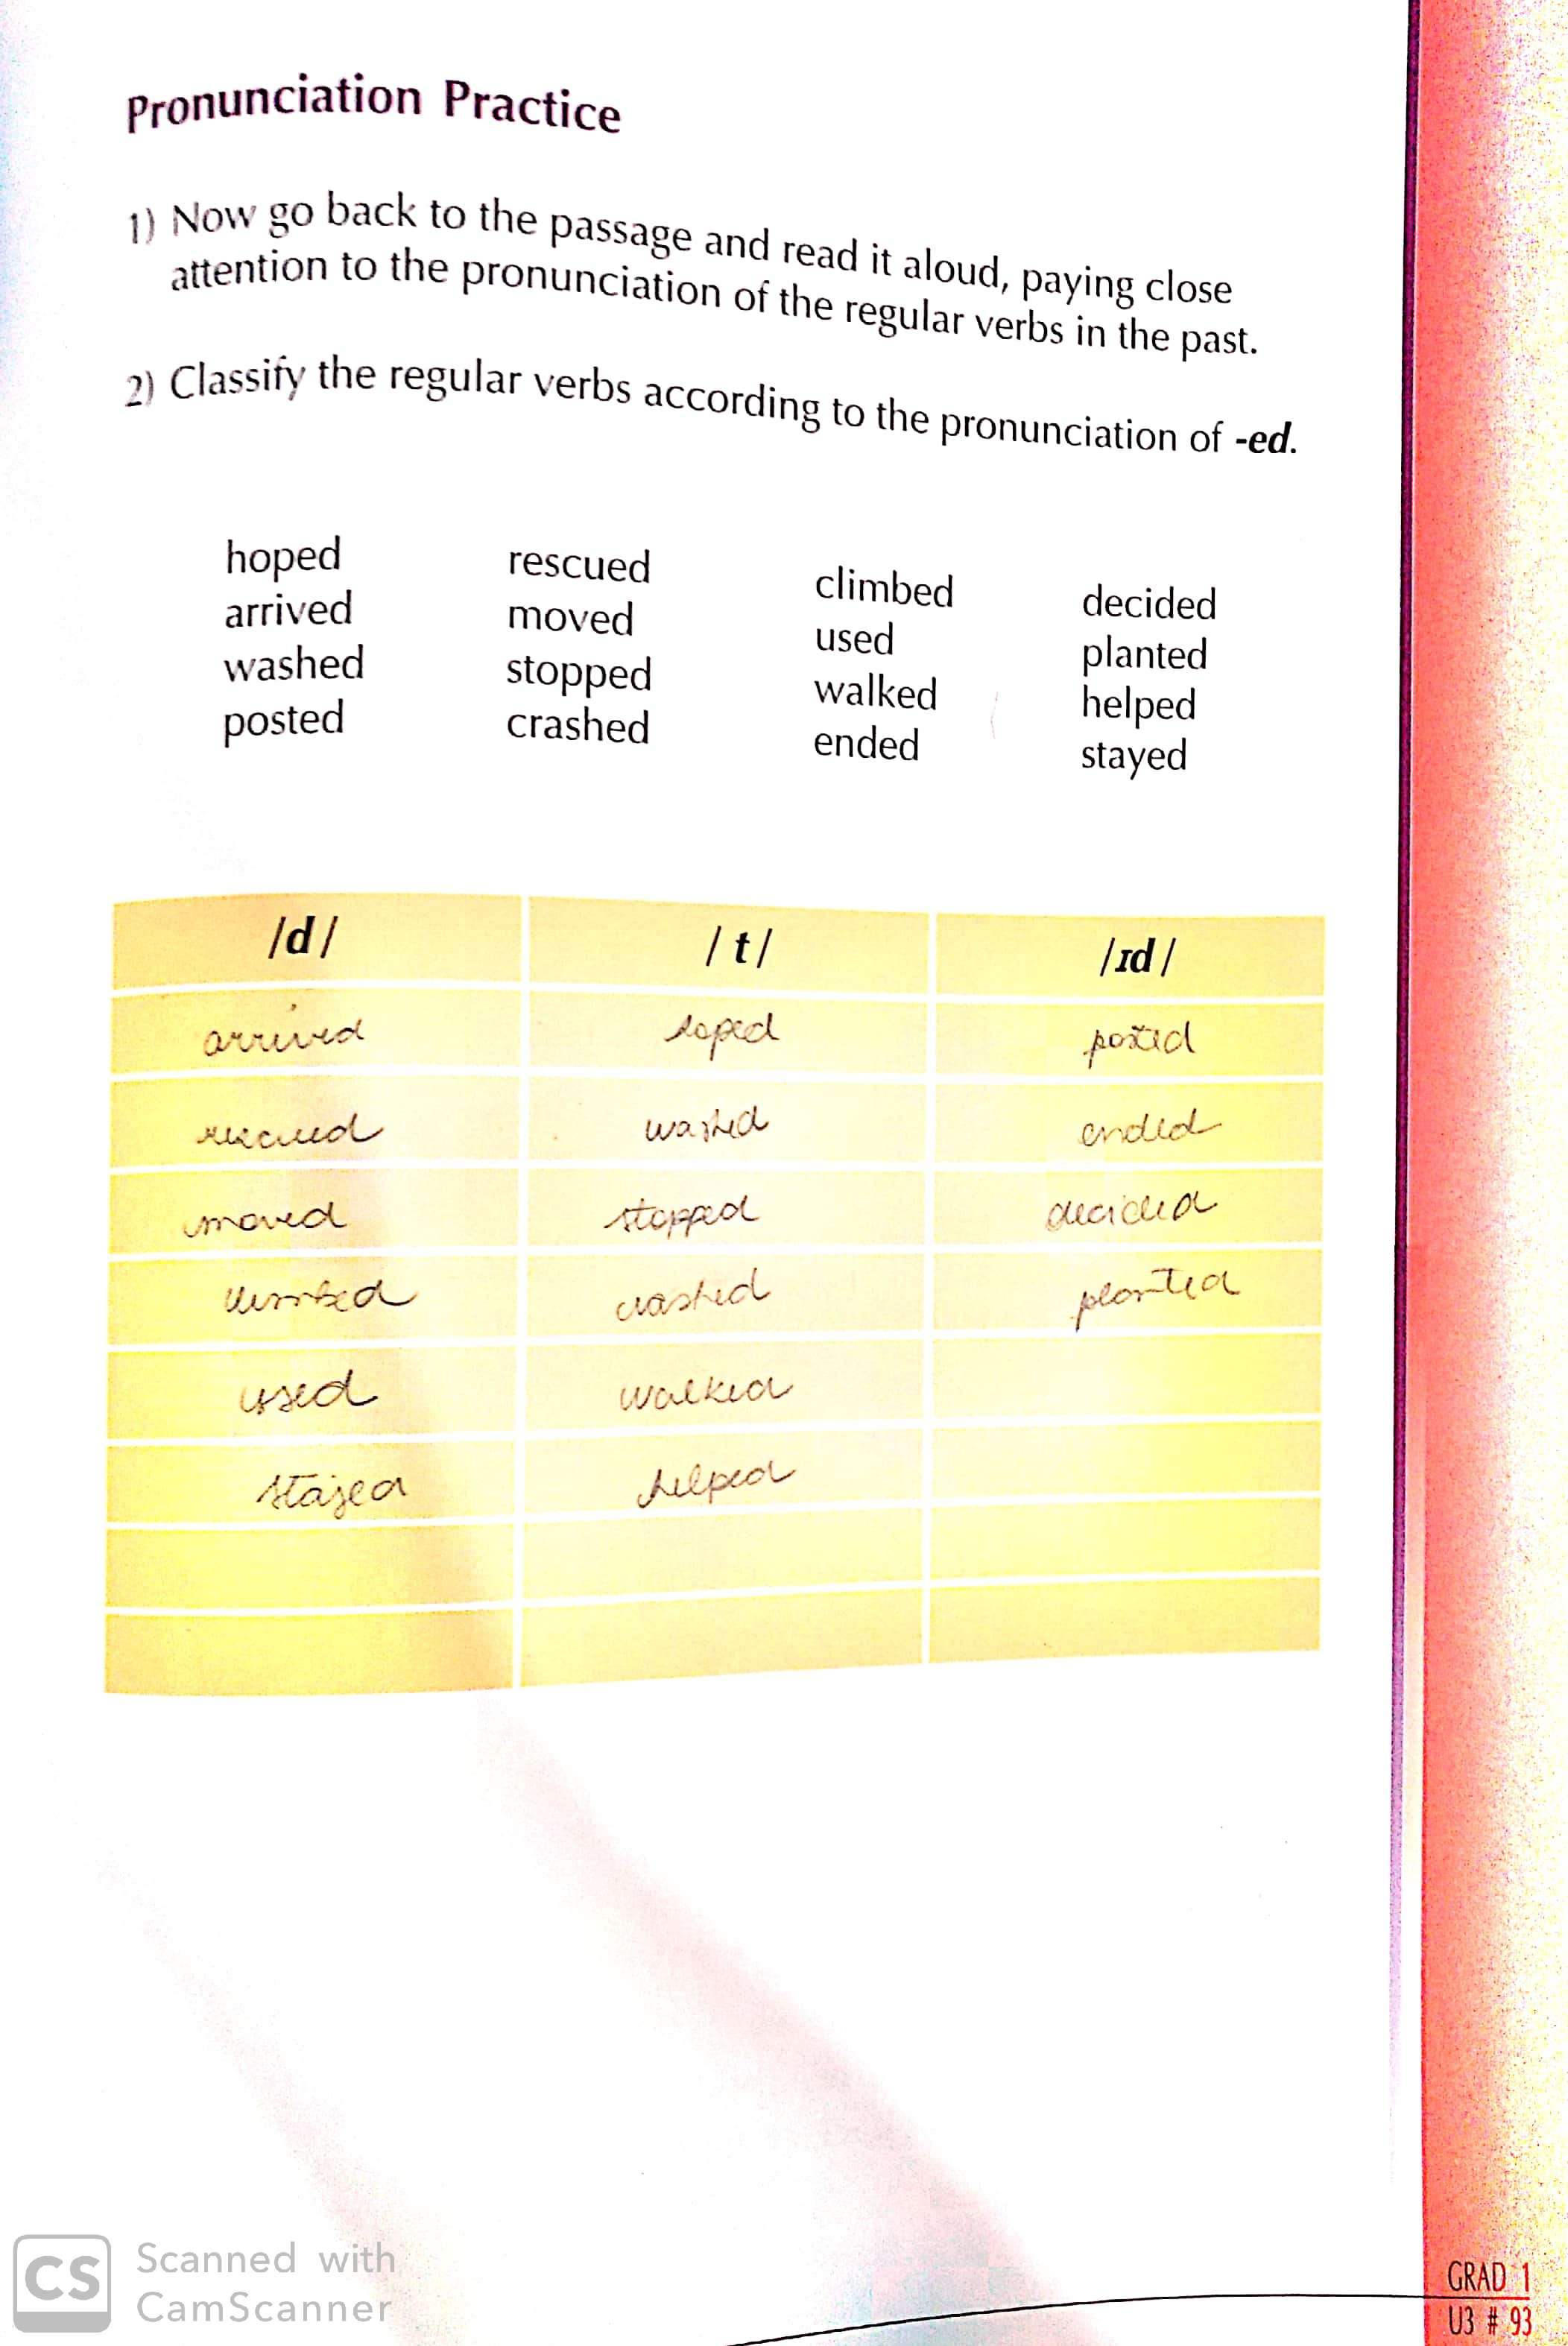 Pronunciation Practice
1) Now go back to the passage and read it aloud, paying close
attention to the pronunciation of the regular verbs in the past.
2) Classify the regular verbs according to the pronunciation of -ed.
hoped rescued climbed decided
arrived moved used planted
washed stopped walked helped
posted crashed ended stayed
/d/ /t/ /ɪd/
arrived hoped posted
rescued washed ended
moved stopped decided
climbed crashed planted
used walked
stayed helped
CS Scanned with
CamScanner
GRAD 1
U3 # 93